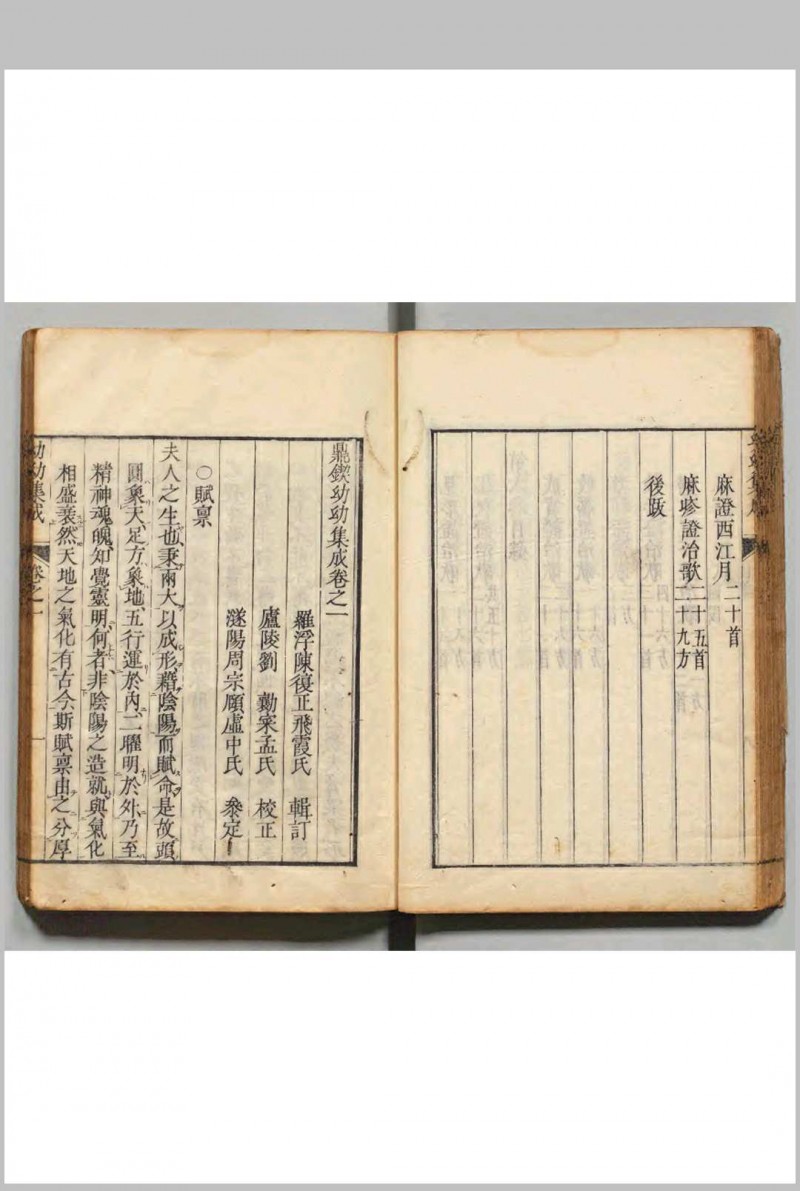 麻證西江月二十首
麻疹證治歌二十五首二十九方
後跋
鼎鍥幼幼集成卷之一
羅浮陳復正飛霞氏 輯訂
廬陵劉 勷宷孟氏 校正
遂陽周宗頤虛中氏 參定
○賦稟
夫人之生也秉兩大以成形藉陰陽而賦命是故頭
圓象天足方象地五行運於內二曜明於外乃至
精神魂魄知覺靈明何者非陰陽之造就與氣化
相盛衰然天地之氣化有古今斯賦稟由之分厚
幼幼集成 卷之一 一